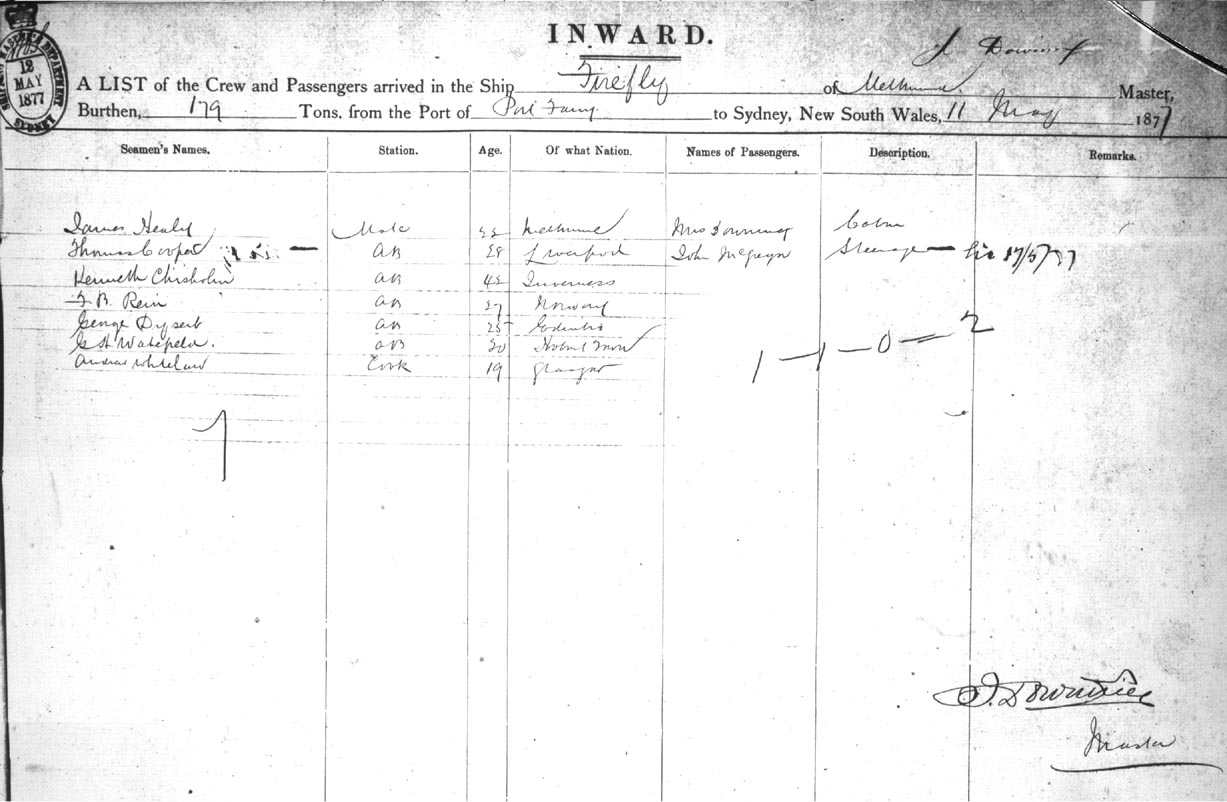 SHIPPING MASTER'S DEPARTMENT
12
MAY
1877
SYDNEY
INWARD.
A LIST of the Crew and Passengers arrived in the Ship Firefly of Melbourne Master,
Burthen, 179 Tons. from the Port of Port Fairy to Sydney, New South Wales, 11 May 1877
Seamen's Names. Station. Age. Of what Nation. Names of Passengers. Description. Remarks.
James Healy Mate Melbourne Mrs Cabin
Thomas Cooper AB 28 Liverpool John McGregor Steerage 17/5/77
Kenneth Chisholm AB 42 Inverness
AB 27 Norway
George AB 25
AB 20
Cook 19 Glasgow
1 - 1 - 0 = 2
7
Master